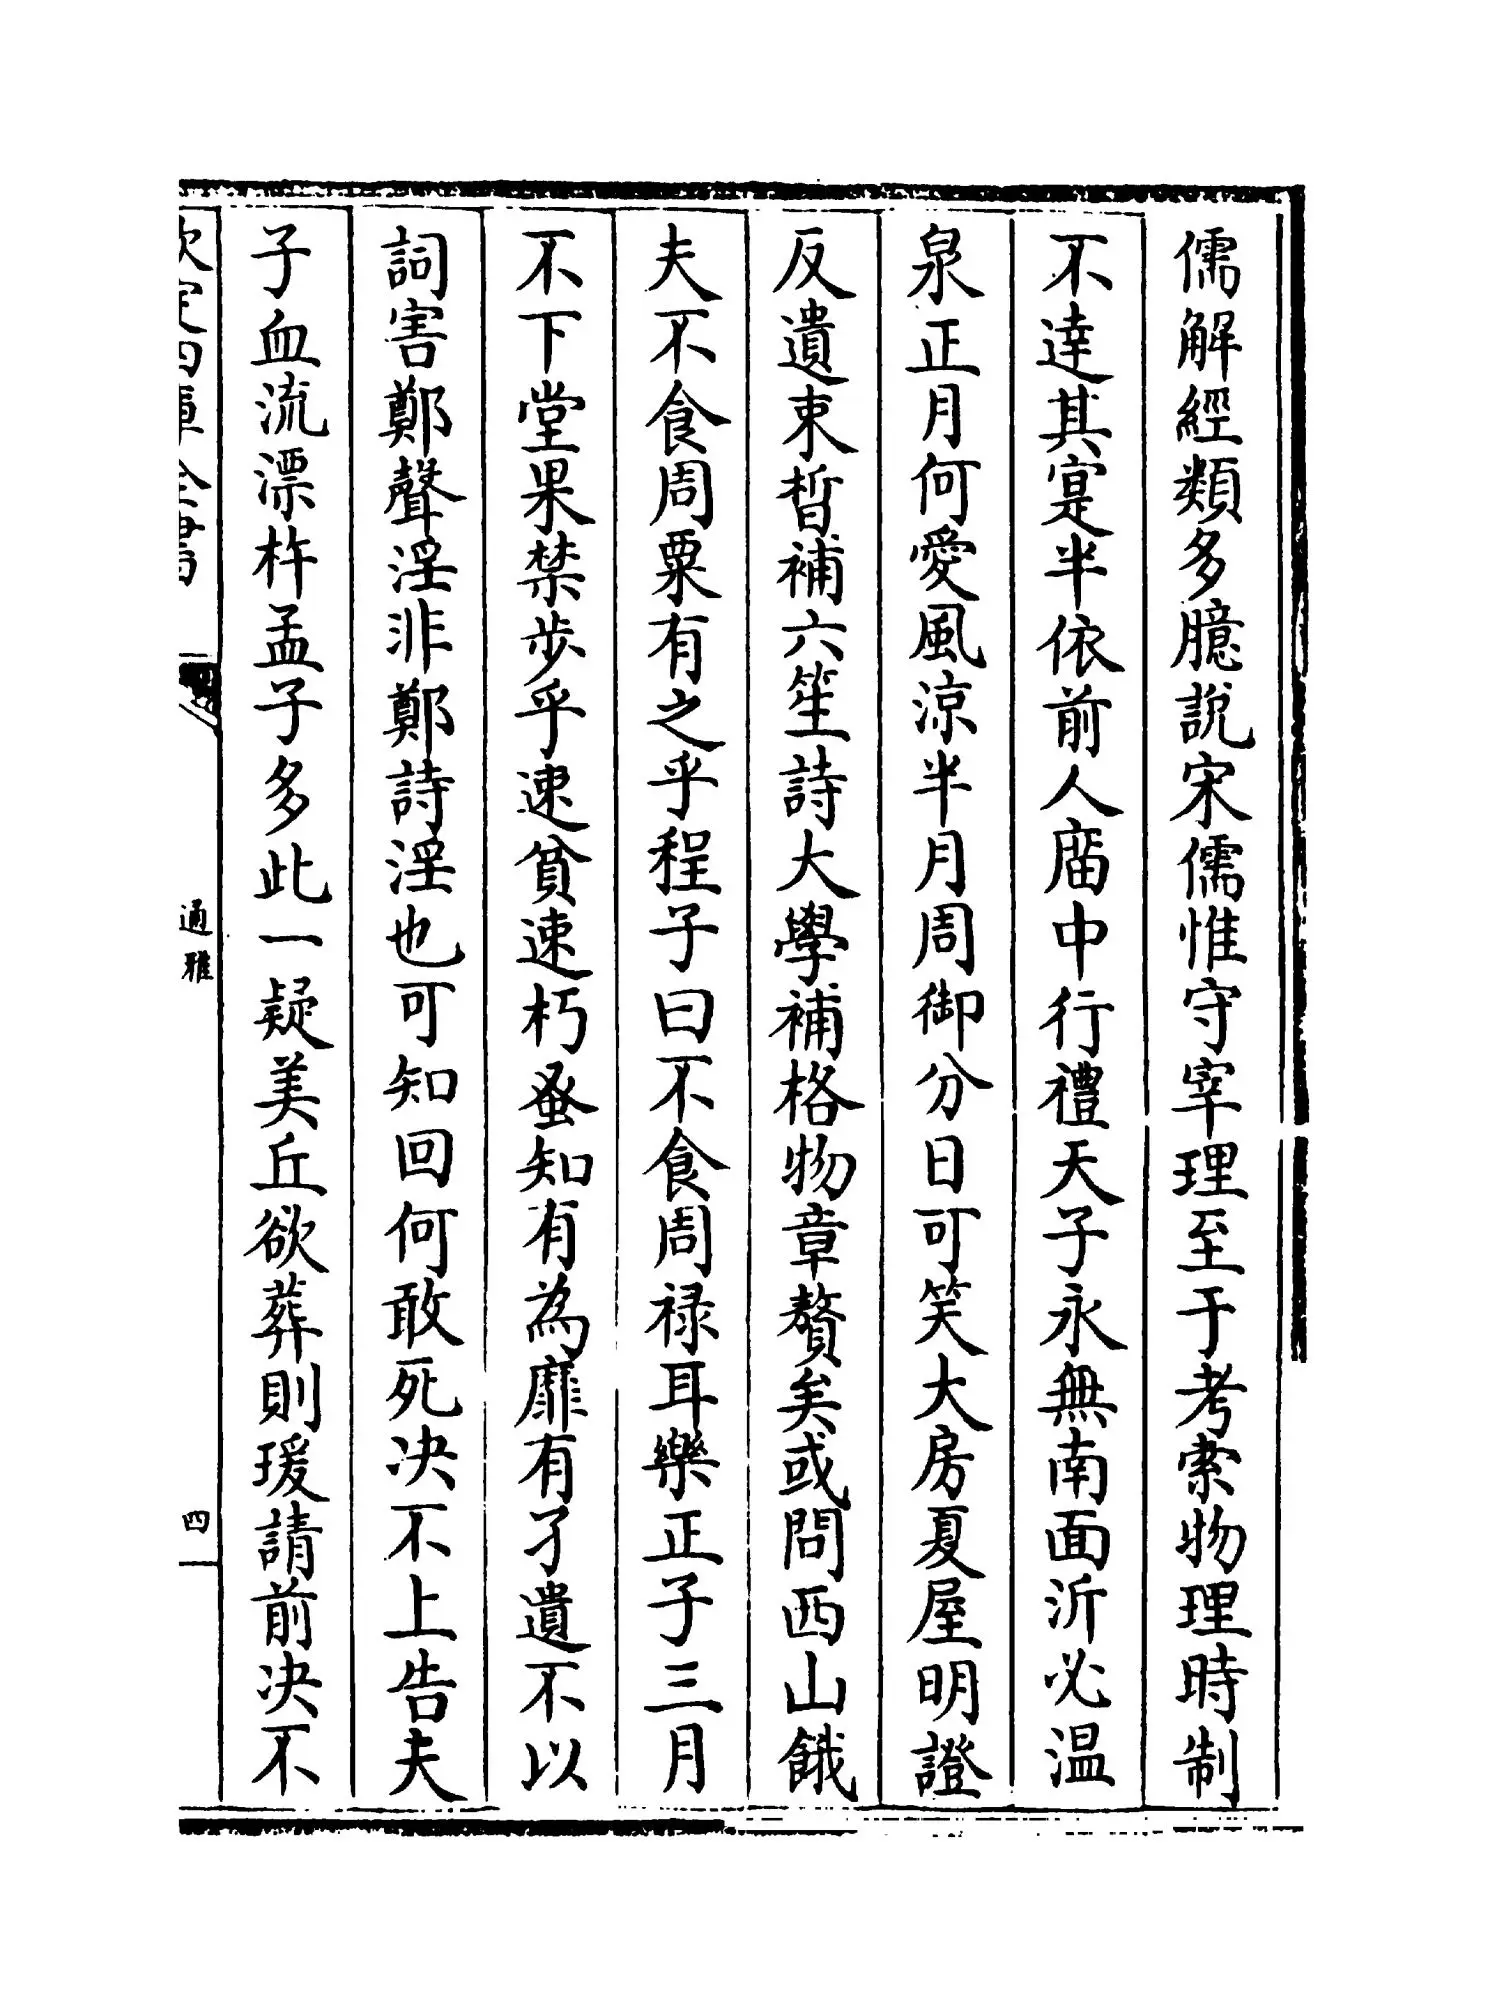 儒解經類多臆說宋儒惟守宰理至于考索物理時制
不達其寔半依前人㢑中行禮天子永無南面沂必温
泉正月何愛風涼半月周御分日可笑大房夏屋明證
反遺束晳補六笙詩大學補格物章贅矣或問西山餓
夫不食周粟有之乎程子曰不食周祿耳樂正子三月
不下堂果禁步乎速貧速朽蚤知有為靡有孑遺不以
詞害鄭聲淫非鄭詩淫也可知回何敢死决不上告夫
子血流漂杵孟子多此一疑美丘欲葬則瑗請前决不
欽定四庫全書
通雅
四